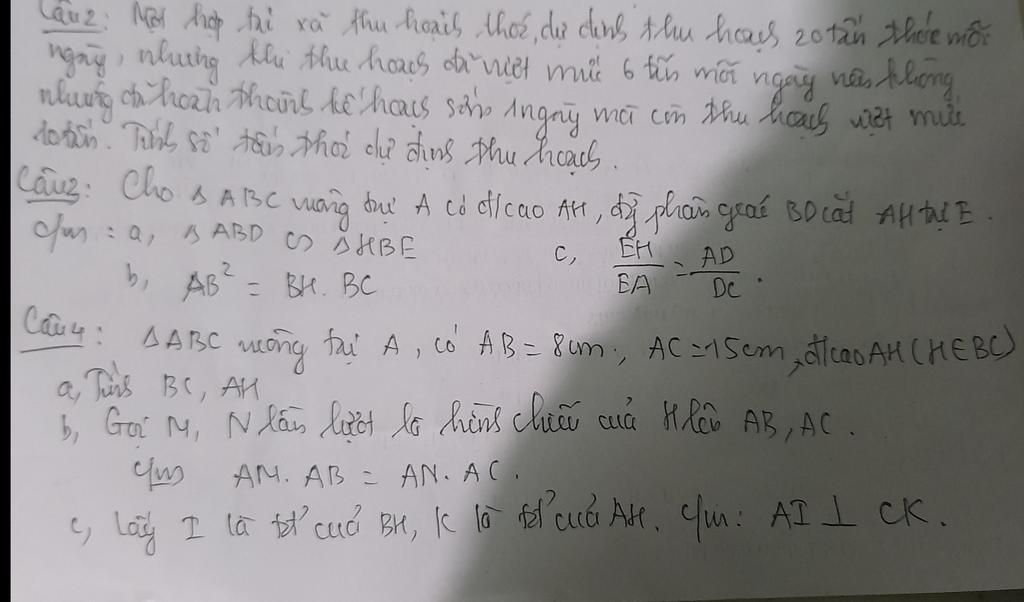 Câu 2: Một hợp tác xã thu hoạch thóc, dự định thu hoạch 20 tấn thóc mỗi
ngày, nhưng khi thu hoạch đã vượt mức 6 tấn mỗi ngày nên không
những đã hoàn thành kế hoạch sớm 1 ngày mà còn thu hoạch vượt mức
10 tấn. Tính số tấn thóc dự định thu hoạch.
Câu 3: Cho Δ ABC vuông tại A có đ/cao AH, đg phân giác BD cắt AH tại E.
c/m : a, Δ ABD ∽ Δ HBE c, EH/EA = AD/DC.
b, AB² = BH. BC
Câu 4: Δ ABC vuông tại A, có AB = 8cm, AC = 15cm, đ/cao AH (H∈BC)
a, Tính BC, AH
b, Gọi M, N lần lượt là hình chiếu của H lên AB, AC.
c/m AM. AB = AN. AC.
c, Lấy I là tđ của BH, K là tđ của AH. c/m: AI ⊥ CK.